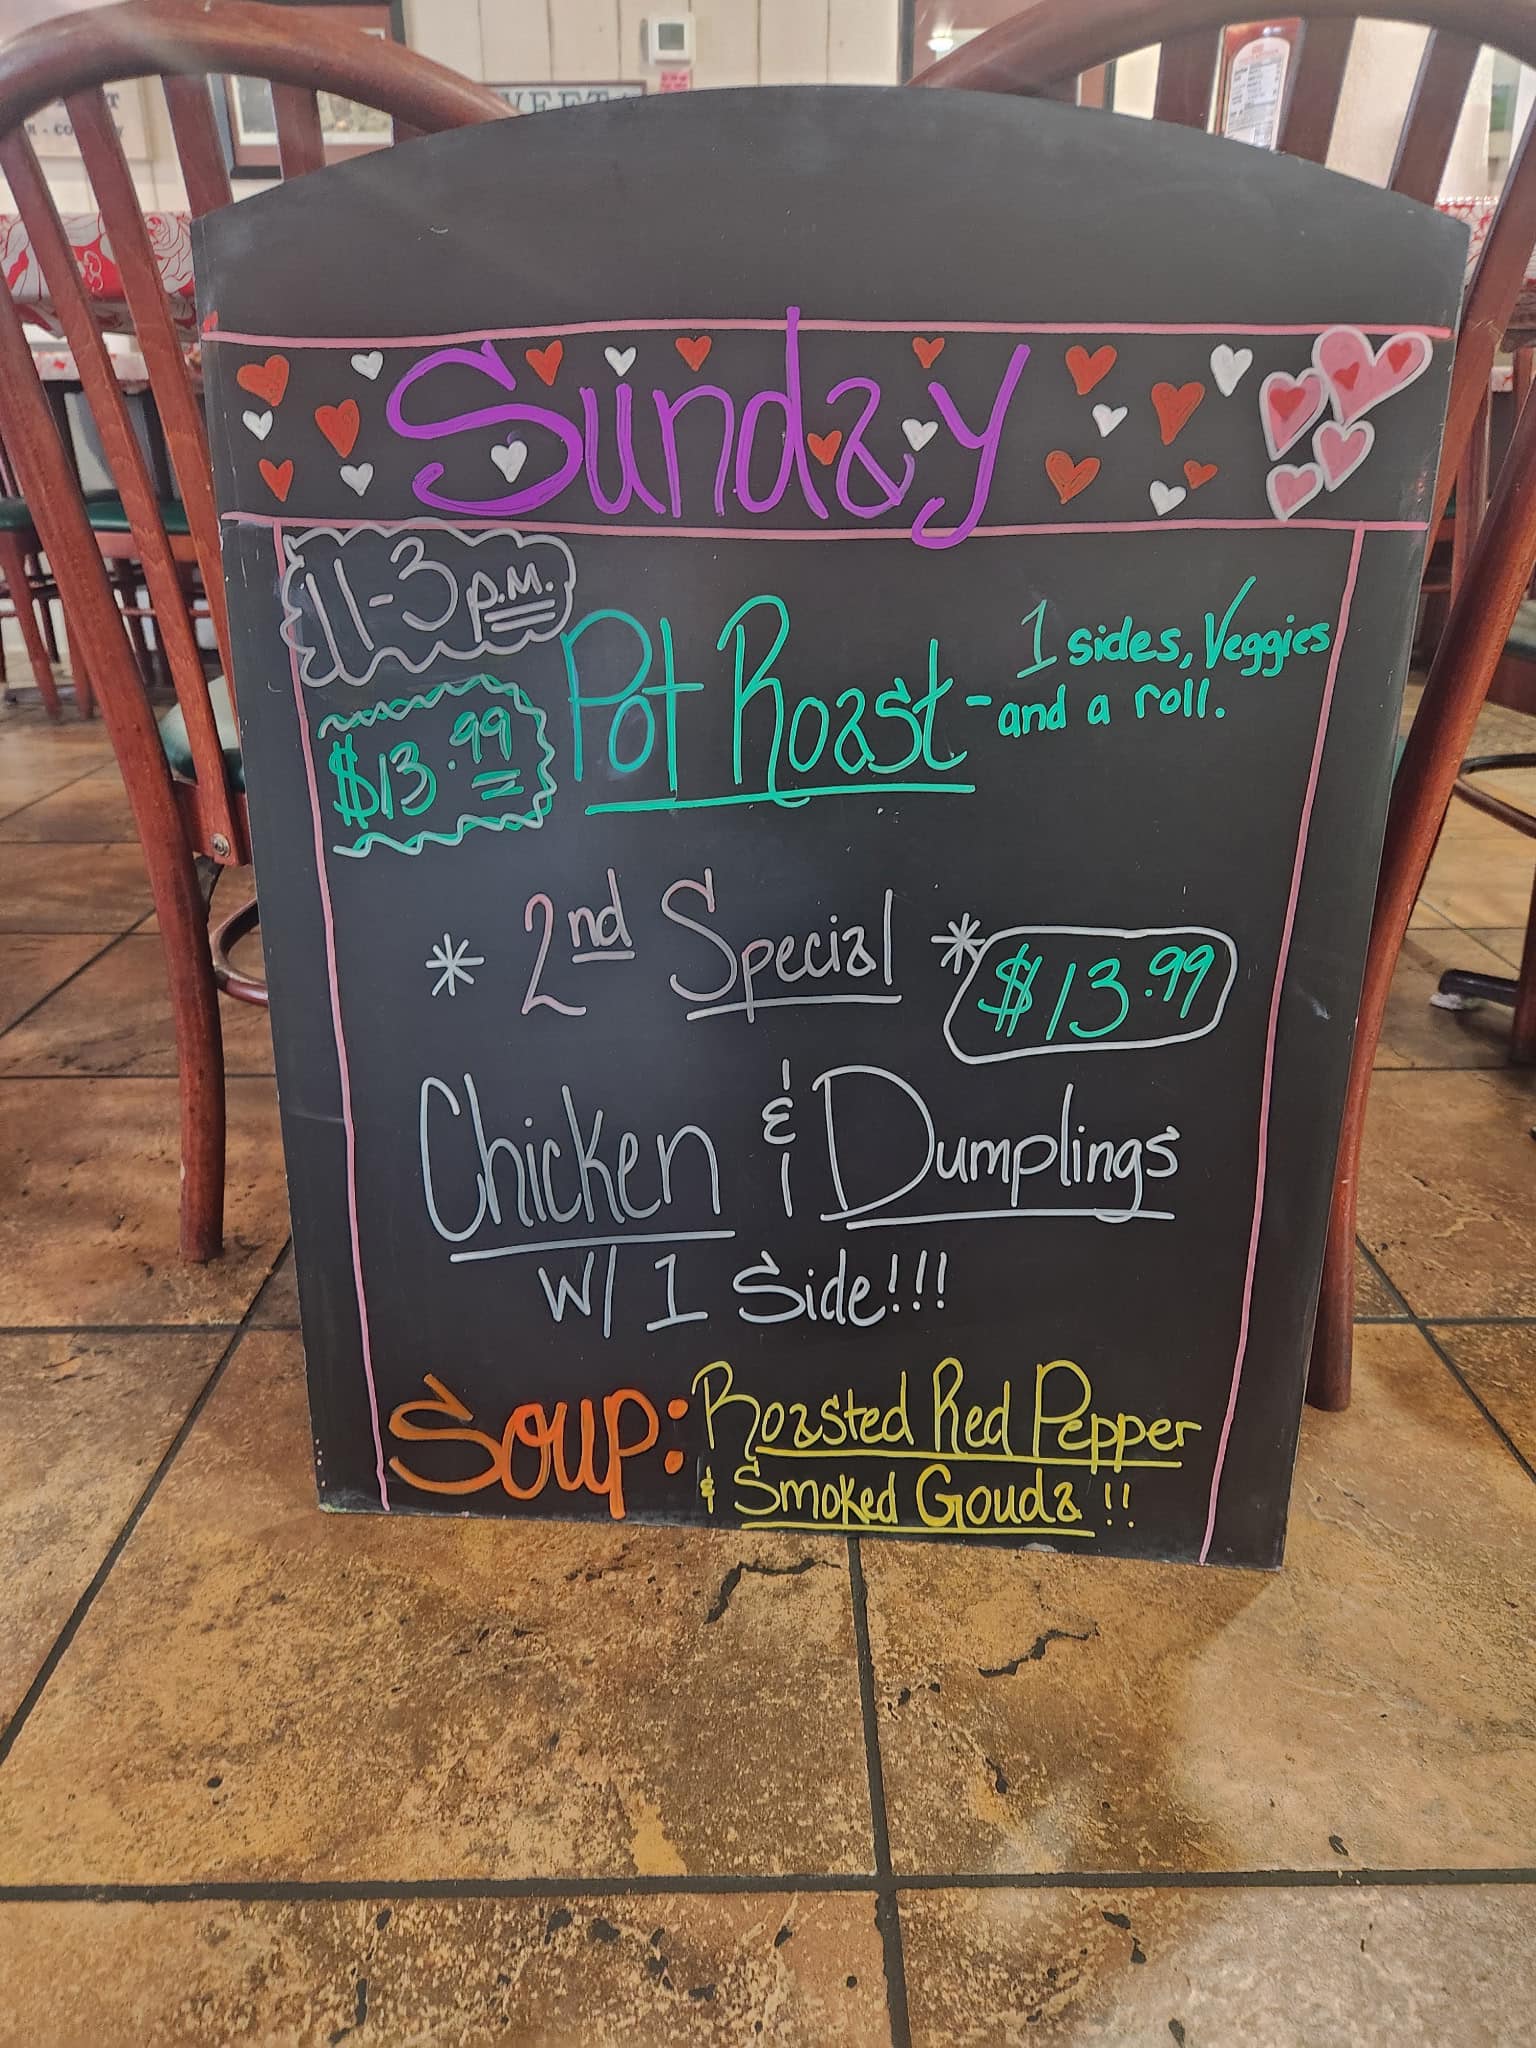 Sunday
11-3 p.m.
$13.99
Pot Roast - 1 sides, Veggies
and a roll.
* 2nd Special *
$13.99
Chicken & Dumplings
W/ 1 Side!!!
Soup: Roasted Red Pepper
& Smoked Gouda !!